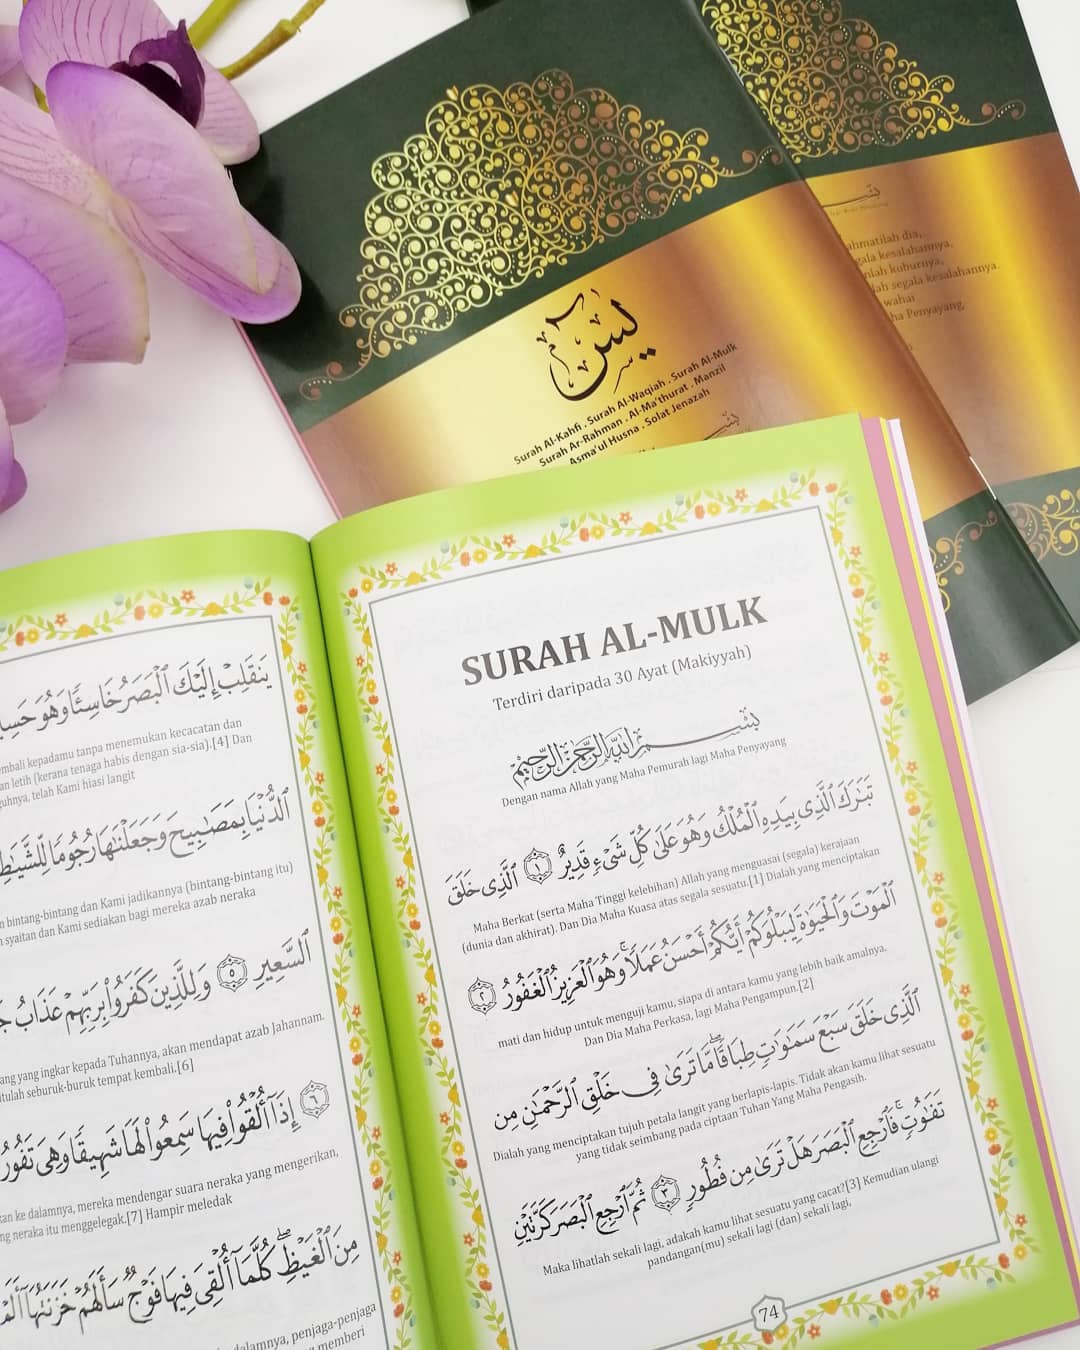 يسٓ
Surah Al-Kahfi . Surah Al-Waqiah . Surah Al-Mulk
Surah Ar-Rahman . Al-Ma'thurat . Manzil
Asma'ul Husna . Solat Jenazah
ahmatilah dia,
gala kesalahannya,
nlah kuburnya,
lah segala kesalahannya.
wahai
ha Penyayang,
SURAH AL-MULK
Terdiri daripada 30 Ayat (Makiyyah)
بِسْمِ ٱللَّهِ ٱلرَّحْمَٰنِ ٱلرَّحِيمِ
Dengan nama Allah yang Maha Pemurah lagi Maha Penyayang
تَبَٰرَكَ ٱلَّذِى بِيَدِهِ ٱلْمُلْكُ وَهُوَ عَلَىٰ كُلِّ شَىْءٍ قَدِيرٌ ١ ٱلَّذِى خَلَقَ
Maha Berkat (serta Maha Tinggi kelebihan) Allah yang menguasai (segala) kerajaan
(dunia dan akhirat). Dan Dia Maha Kuasa atas segala sesuatu.[1] Dialah yang menciptakan
ٱلْمَوْتَ وَٱلْحَيَوٰةَ لِيَبْلُوَكُمْ أَيُّكُمْ أَحْسَنُ عَمَلًا ۚ وَهُوَ ٱلْعَزِيزُ ٱلْغَفُورُ ٢
mati dan hidup untuk menguji kamu, siapa di antara kamu yang lebih baik amalnya,
Dan Dia Maha Perkasa, lagi Maha Pengampun.[2]
ٱلَّذِى خَلَقَ سَبْعَ سَمَٰوَٰتٍ طِبَاقًا ۖ مَّا تَرَىٰ فِى خَلْقِ ٱلرَّحْمَٰنِ مِن
Dialah yang menciptakan tujuh petala langit yang berlapis-lapis. Tidak akan kamu lihat sesuatu
yang tidak seimbang pada ciptaan Tuhan Yang Maha Pengasih.
تَفَٰوُتٍ ۖ فَٱرْجِعِ ٱلْبَصَرَ هَلْ تَرَىٰ مِن فُطُورٍ ٣ ثُمَّ ٱرْجِعِ ٱلْبَصَرَ كَرَّتَيْنِ
Maka lihatlah sekali lagi, adakah kamu lihat sesuatu yang cacat?[3] Kemudian ulangi
pandangan(mu) sekali lagi (dan) sekali lagi,
74
يَنقَلِبْ إِلَيْكَ ٱلْبَصَرُ خَاسِئًا وَهُوَ حَسِي
embali kepadamu tanpa menemukan kecacatan dan
an letih (kerana tenaga habis dengan sia-sia).[4] Dan
guhnya, telah Kami hiasi langit
ٱلدُّنْيَا بِمَصَٰبِيحَ وَجَعَلْنَٰهَا رُجُومًا لِّلشَّيَٰطِ
n bintang-bintang dan Kami jadikannya (bintang-bintang itu)
syaitan dan Kami sediakan bagi mereka azab neraka
ٱلسَّعِيرِ ٥ وَلِلَّذِينَ كَفَرُوا۟ بِرَبِّهِمْ عَذَابُ جَ
ang yang ingkar kepada Tuhannya, akan mendapat azab Jahannam.
tulah seburuk-buruk tempat kembali.[6]
٦ إِذَآ أُلْقُوا۟ فِيهَا سَمِعُوا۟ لَهَا شَهِيقًا وَهِىَ تَفُورُ
kan ke dalamnya, mereka mendengar suara neraka yang mengerikan,
ng neraka itu menggelegak.[7] Hampir meledak
مِنَ ٱلْغَيْظِ ۖ كُلَّمَآ أُلْقِىَ فِيهَا فَوْجٌ سَأَلَهُمْ خَزَنَتُهَآ أَلَمْ
dalamnya, penjaga-penjaga
memberi